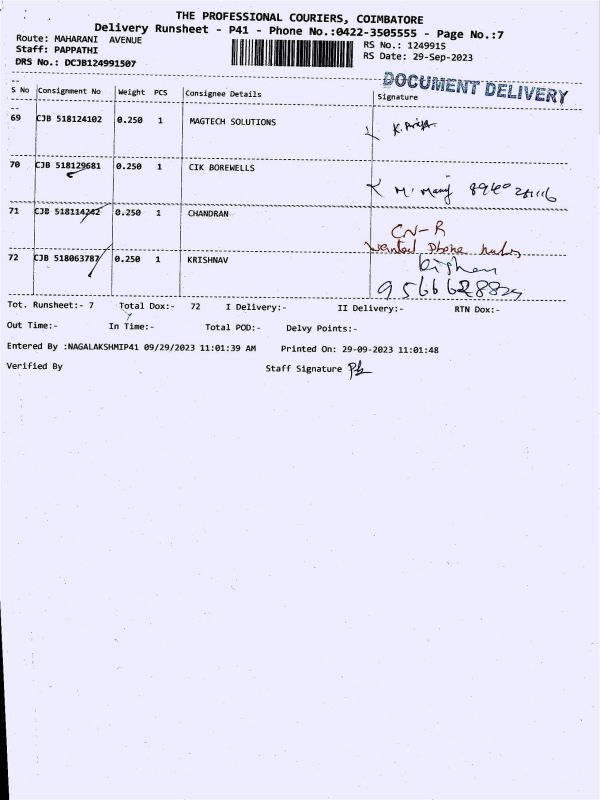 THE PROFESSIONAL COURIERS, COIMBATORE
Delivery Runsheet - P41 - Phone No.:0422-3505555 - Page No.:7
Route: MAHARANI AVENUE RS No.: 1249915
Staff: PAPPATHI RS Date: 29-Sep-2023
DRS No.: DCJB124991507
DOCUMENT DELIVERY
S No Consignment No Weight PCS Consignee Details Signature
69 CJB 518124102 0.250 1 MAGTECH SOLUTIONS K. Priya
70 CJB 518129681 0.250 1 CIK BOREWELLS
71 CJB 518114242 0.250 1 CHANDRAN CN-R
wanted phone
72 CJB 518063787 0.250 1 KRISHNAV
Tot. Runsheet:- 7 Total Dox:- 72 I Delivery:- II Delivery:- RTN Dox:-
Out Time:- In Time:- Total POD:- Delvy Points:-
Entered By :NAGALAKSHMIP41 09/29/2023 11:01:39 AM Printed On: 29-09-2023 11:01:48
Verified By Staff Signature